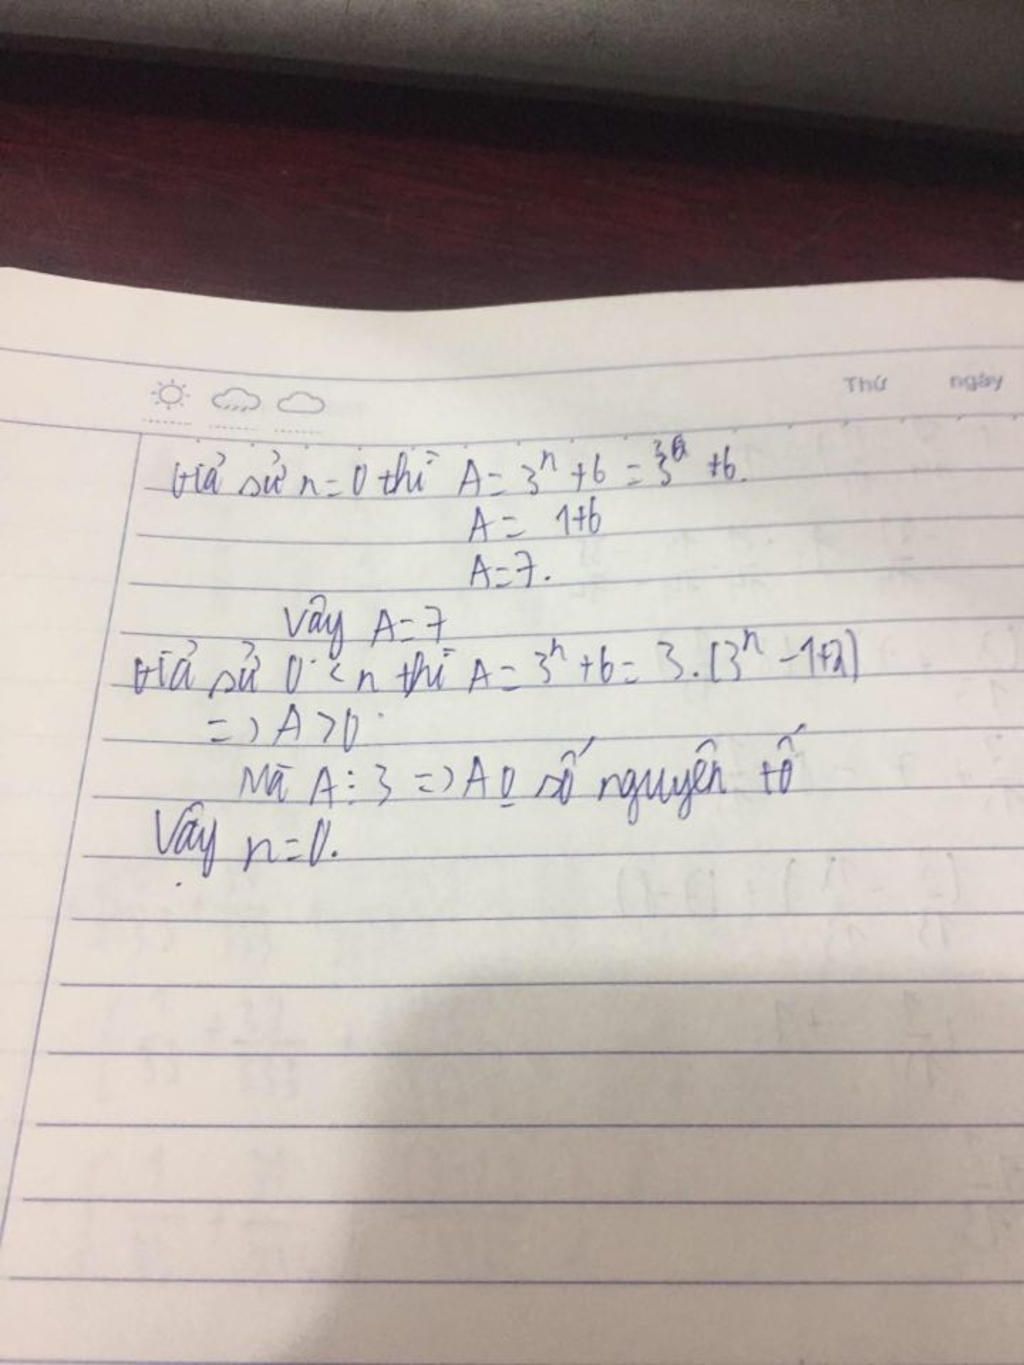 Thứ ngày
Giả sử n=0 thì A=3ⁿ+6=3⁰+6.
A= 1+6
A=7.
Vậy A=7
Giả sử 0<n thì A=3ⁿ+6=3.(3ⁿ-1+2)
=>A>0
Mà A⋮3 =>A số nguyên tố
Vậy n=0.